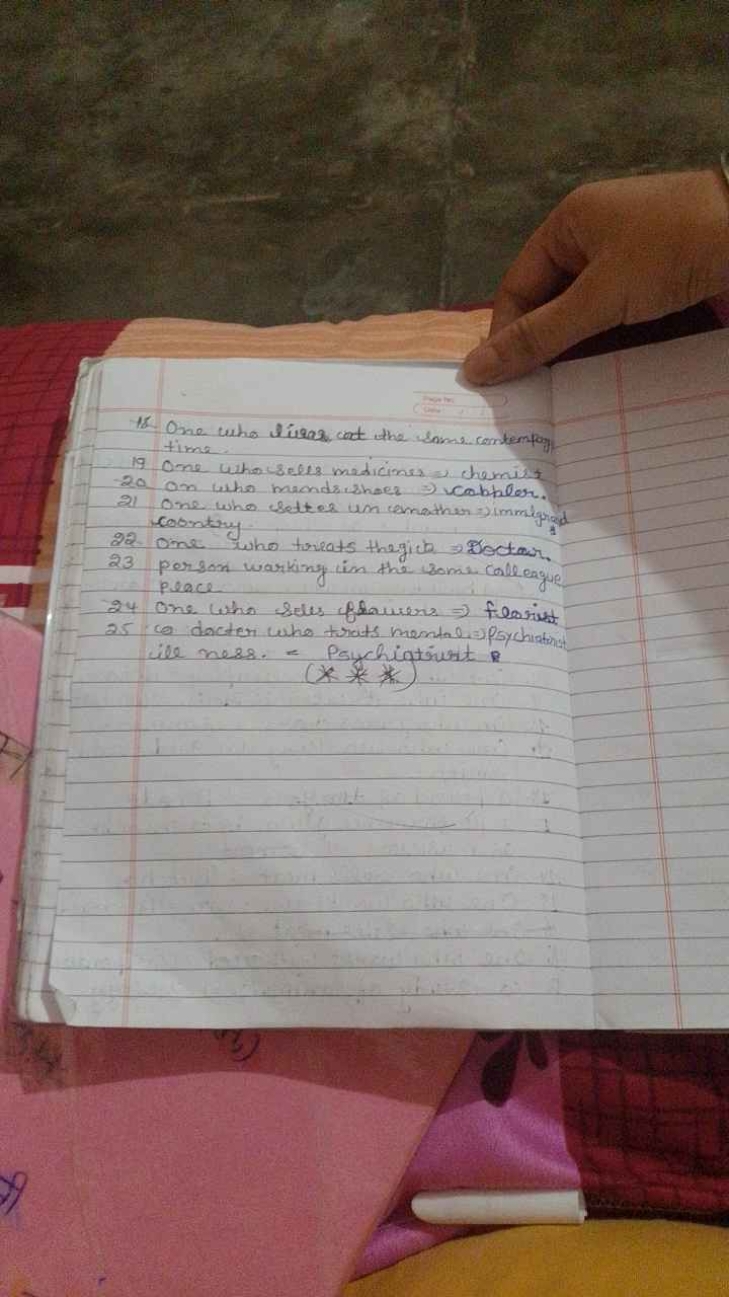 Page No.
Date
18. One who lives at the same contempog
time.
19 One who sells medicines => chemist
20 On who mends shoes => Cobbler.
21 One who settes in another => immigrand
coontry.
22. One who treats the sick => Doctor.
23 person warking in the some Colleague
place
24 One who seles flawers => florist
25 a docter who trats mental => Psychiatrist
ill ness. = Psychiatrist
(* * *)